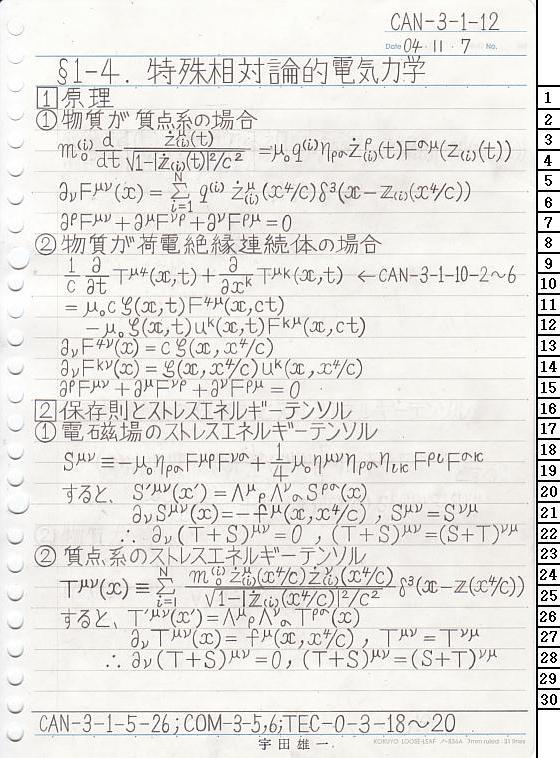 CAN-3-1-12
Date 04・11・7 No.
§1-4. 特殊相対論的電気力学
1 原理
① 物質が質点系の場合
m₀⁽ⁱ⁾ d/dt ż₍ᵢ₎^μ(t)/√1-|ż₍ᵢ₎(t)|²/c² = μ₀q⁽ⁱ⁾η_ρσ ż₍ᵢ₎^ρ(t)F^σμ(z₍ᵢ₎(t))
∂_νF^μν(x) = Σ_{i=1}^N q⁽ⁱ⁾ ż₍ᵢ₎^μ(x⁴/c)δ³(x-z₍ᵢ₎(x⁴/c))
∂^ρF^μν+∂^μF^νρ+∂^νF^ρμ=0
② 物質が荷電絶縁連続体の場合
1/c ∂/∂t T^μ4(x,t)+∂/∂x^k T^μk(x,t) ←CAN-3-1-10-2〜6
=μ₀cξ(x,t)F^4μ(x,ct)
-μ₀ξ(x,t)u^k(x,t)F^kμ(x,ct)
∂_νF^4ν(x)=cξ(x,x⁴/c)
∂_νF^kν(x)=ξ(x,x⁴/c)u^k(x,x⁴/c)
∂^ρF^μν+∂^μF^νρ+∂^νF^ρμ=0
2 保存則とストレスエネルギーテンソル
① 電磁場のストレスエネルギーテンソル
S^μν≡-μ₀η_ρσF^μρF^νσ+1/4 μ₀η^μνη_ρση_ικF^ριF^σκ
すると、S'^μν(x')=Λ^μ_ρΛ^ν_σS^ρσ(x)
∂_νS^μν(x)=-f^μ(x,x⁴/c), S^μν=S^νμ
∴ ∂_ν(T+S)^μν=0, (T+S)^μν=(S+T)^νμ
② 質点系のストレスエネルギーテンソル
T^μν(x)≡Σ_{i=1}^N m₀⁽ⁱ⁾ż₍ᵢ₎^μ(x⁴/c)ż₍ᵢ₎^ν(x⁴/c)/√1-|ż₍ᵢ₎(x⁴/c)|²/c² δ³(x-z₍ᵢ₎(x⁴/c))
すると、T'^μν(x')=Λ^μ_ρΛ^ν_σT^ρσ(x)
∂_νT^μν(x)=f^μ(x,x⁴/c), T^μν=T^νμ
∴ ∂_ν(T+S)^μν=0, (T+S)^μν=(S+T)^νμ
CAN-3-1-5-26;COM-3-5,6;TEC-0-3-18〜20
宇田雄一
KOKUYO LOOSE-LEAF ノ-836A 7mm ruled 31 lines
1
2
3
4
5
6
7
8
9
10
11
12
13
14
15
16
17
18
19
20
21
22
23
24
25
26
27
28
29
30